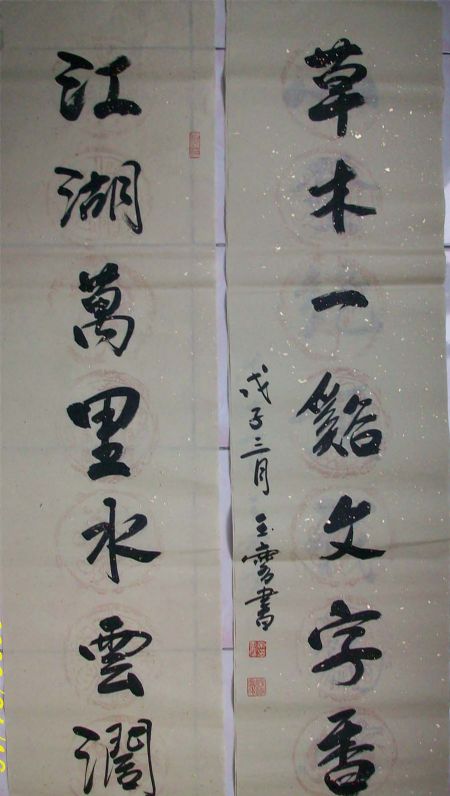 江湖萬里水雲濶
草木一谿文字香
戊子三月 書